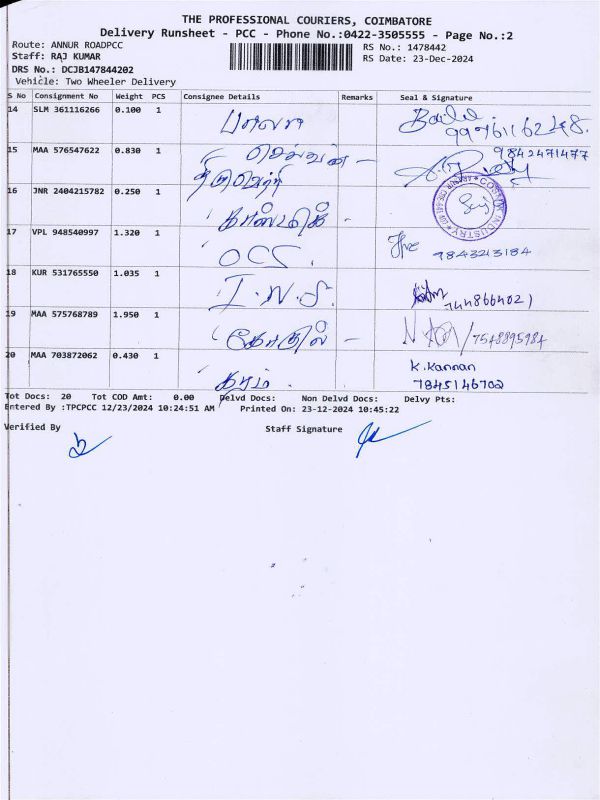 THE PROFESSIONAL COURIERS, COIMBATORE
Delivery Runsheet - PCC - Phone No.:0422-3505555 - Page No.:2
Route: ANNUR ROADPCC
RS No.: 1478442
Staff: RAJ KUMAR
RS Date: 23-Dec-2024
DRS No.: DCJB147844202
Vehicle: Two Wheeler Delivery
S No Consignment No Weight PCS Consignee Details Remarks Seal & Signature
14 SLM 361116266 0.100 1
9976116248.
15 MAA 576547622 0.830 1 செல்வன் -
9842471477
16 JNR 2404215782 0.250 1
17 VPL 948540997 1.320 1 OCS.
9843213184
18 KUR 531765550 1.035 1 I.N.S.
7448664021
19 MAA 575768789 1.950 1 கோகுல் -
7548895984
20 MAA 703872062 0.430 1
K.Kannan
7845146702
Tot Docs: 20 Tot COD Amt: 0.00 Delvd Docs: Non Delvd Docs: Delvy Pts:
Entered By :TPCPCC 12/23/2024 10:24:51 AM Printed On: 23-12-2024 10:45:22
Verified By Staff Signature